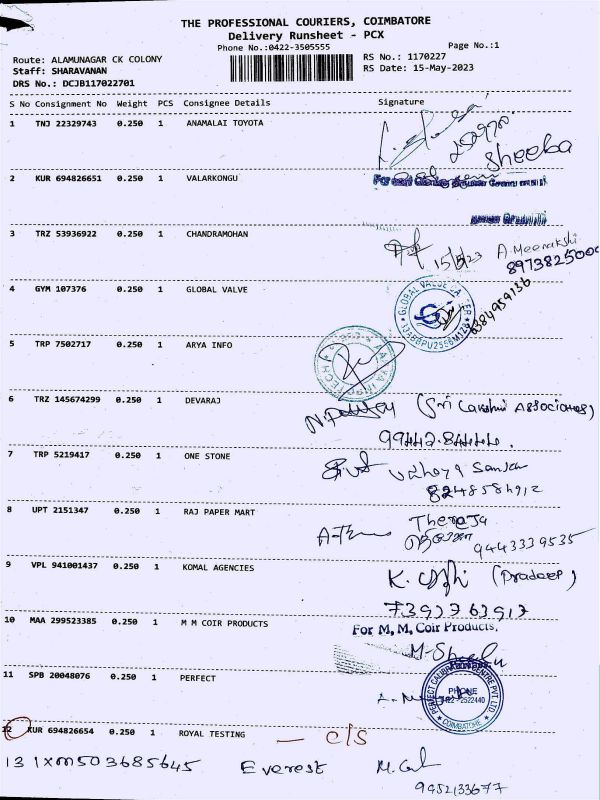 THE PROFESSIONAL COURIERS, COIMBATORE
Delivery Runsheet - PCX
Phone No.:0422-3505555
Page No.:1
Route: ALAMUNAGAR CK COLONY
RS No.: 1170227
Staff: SHARAVANAN
RS Date: 15-May-2023
DRS No.: DCJB117022701
S No Consignment No Weight PCS Consignee Details Signature
1 TNJ 22329743 0.250 1 ANAMALAI TOYOTA
Sheeba
2 KUR 694826651 0.250 1 VALARKONGU
3 TRZ 53936922 0.250 1 CHANDRAMOHAN
15/5/23 A.Meenakshi
8973825000
4 GYM 107376 0.250 1 GLOBAL VALVE
5 TRP 7502717 0.250 1 ARYA INFO
6 TRZ 145674299 0.250 1 DEVARAJ
(Sri Lakshmi Associates)
99442.84444.
7 TRP 5219417 0.250 1 ONE STONE
8248584912
8 UPT 2151347 0.250 1 RAJ PAPER MART
Theraja
9443339535
9 VPL 941001437 0.250 1 KOMAL AGENCIES
(Pradeep)
7392763917
10 MAA 299523385 0.250 1 M M COIR PRODUCTS
For M, M, Coir Products.
11 SPB 20048076 0.250 1 PERFECT
PHONE
COIMBATORE
12 KUR 694826654 0.250 1 ROYAL TESTING — C/S
13 1XM503685645 Everest
9452133677